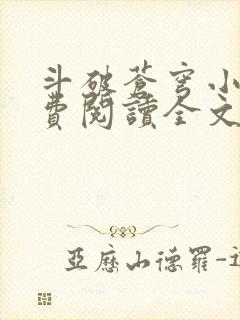 斗破蒼穹小
費閱讀全文
亞歷山德羅-